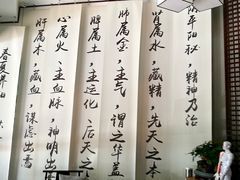 阴平阳秘，精神乃治
肾属水，藏精，先天之本
肺属金，主气，谓之华盖
脾属土，主运化，后天之
心属火，主血脉，神明出
肝属木，藏血，谋虑出焉
春夏养